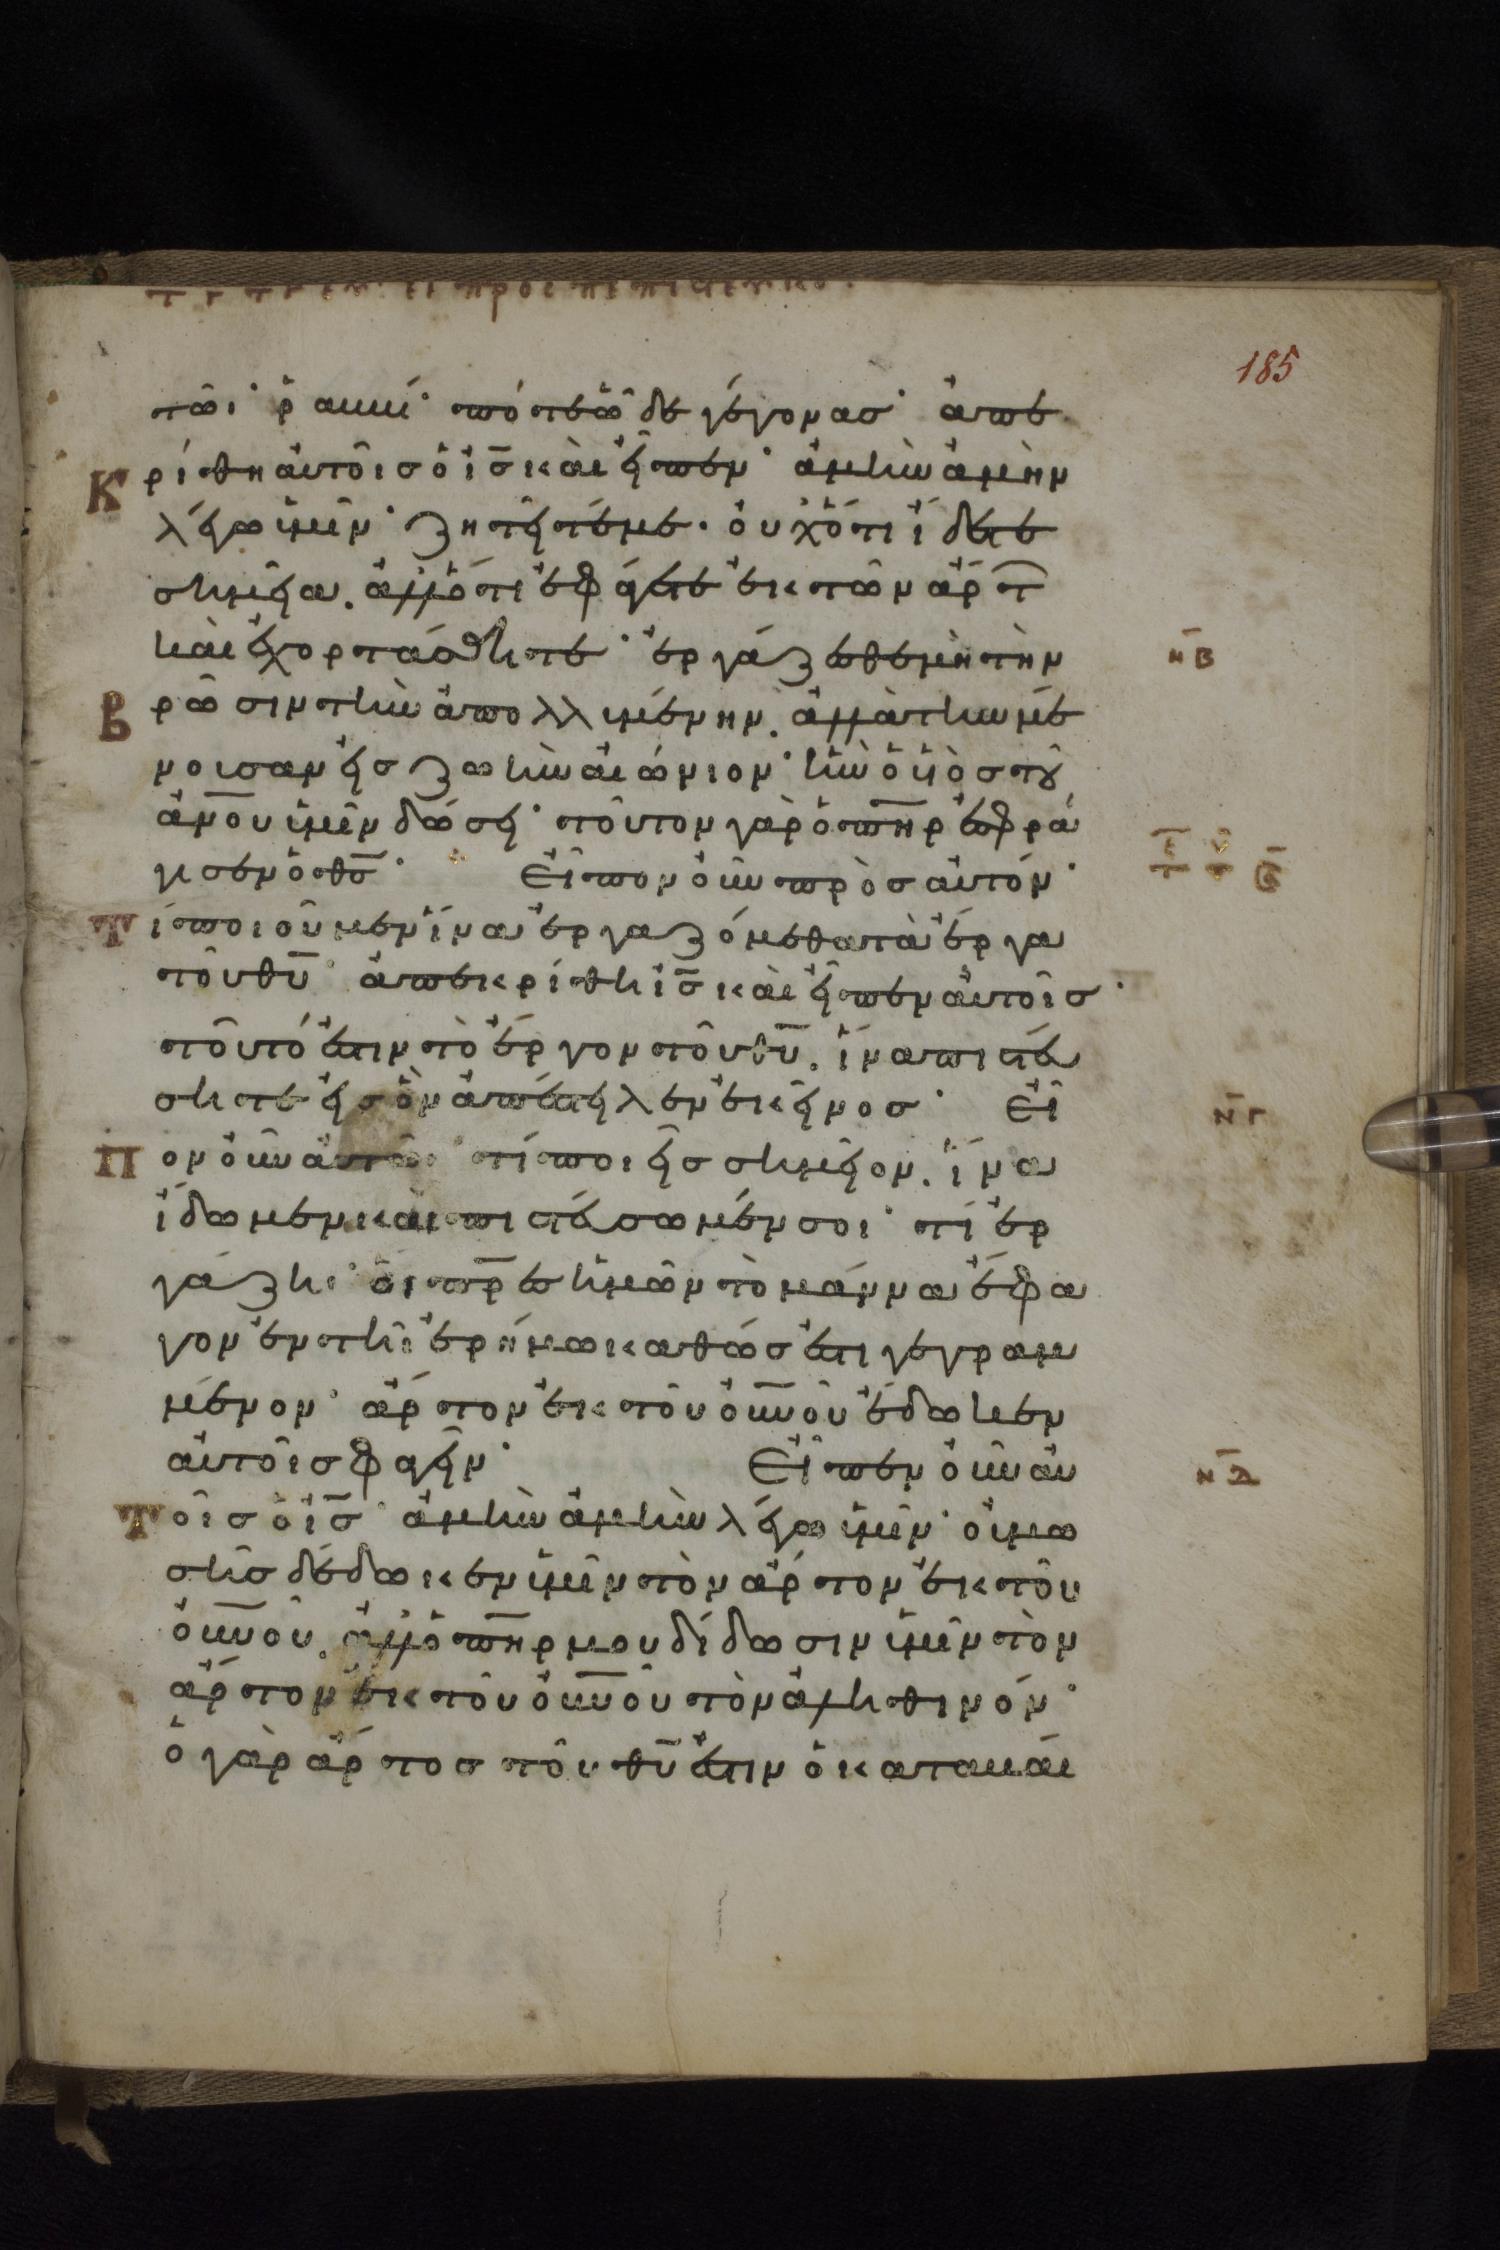 τῶι· ῥαββί· πότε ὧδε γέγονας· ἀπε
κρίθη αὐτοῖς ὁ ις̅ καὶ εἶπεν· ἀμὴν ἀμὴν
λέγω ὑμῖν· ζητεῖτέ με· οὐχ ὅτι ἴδετε
σημεῖα. ἀλλ' ὅτι ἐφάγετε ἐκ τῶν ἄρτ
καὶ ἐχορτάσθητε· ἐργάζεσθε μὴ τὴν
νβ̅
βρῶσιν τὴν ἀπολλυμένην. ἀλλὰ τὴν μέ
νουσαν εἰς ζωὴν αἰώνιον· ἣν ὁ υἱὸς τοῦ
ἀνου̅ ὑμῖν δώσει· τοῦτον γὰρ ὁ πηρ̅ ἐσφρά
γισεν ὁ θς̅· Εἶπον οὖν πρὸς αὐτόν·
τί ποιοῦμεν ἵνα ἐργαζόμεθα τὰ ἔργα
τοῦ θυ̅· ἀπεκρίθη ις̅ καὶ εἶπεν αὐτοῖς·
τοῦτό ἐστιν τὸ ἔργον τοῦ θυ̅. ἵνα πιστεύ
σητε εἰς ὃν ἀπέστειλεν ἐκεῖνος· Εἶ
νγ̅
πον οὖν αὐτῶι· τί ποιεῖς σημεῖον. ἵνα
ἴδωμεν καὶ πιστεύσωμέν σοι· τί ἐρ
γάζηι· οἱ πρε̅ς ἡμῶν τὸ μάννα ἔφα
γον ἐν τῆι ἐρήμω καθώς ἐστι γεγραμ
μένον· ἄρτον ἐκ τοῦ οὐνοῦ̅ ἔδωκεν
αὐτοῖς φαγεῖν· Εἶπεν οὖν αὐ
νδ̅
τοῖς ὁ ις̅· ἀμὴν ἀμὴν λέγω ὑμῖν· οὐ μω
σῆς δέδωκεν ὑμῖν τὸν ἄρτον ἐκ τοῦ
οὐνοῦ̅. ἀλλ' ὁ πηρ̅ μου δίδωσιν ὑμῖν τὸν
ἄρτον ἐκ τοῦ οὐνοῦ̅ τὸν ἀληθινόν·
ὁ γὰρ ἄρτος τοῦ θυ̅ ἐστιν ὁ καταβαί
185